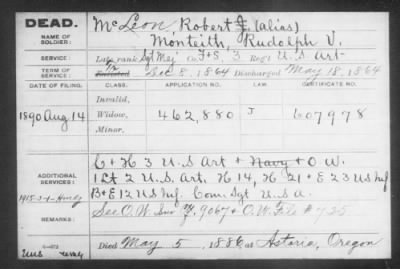 DEAD.
NAME OF SOLDIER:
McLeon, Robert J. (alias)
Monteith, Rudolph V.
SERVICE:
Late rank Sgt Maj Co. F+S, 3 Reg't U.S. Art
TERM OF SERVICE:
Enlisted Dec 8, 1864 Discharged May 18, 1864
DATE OF FILING. CLASS. APPLICATION NO. LAW. CERTIFICATE NO.
Invalid,
1890 Aug 14 Widow, 462,880 J 607978
Minor,
ADDITIONAL SERVICES:
G+H 3 U.S Art + Navy + O W.
1 Lt 2 U.S. Art, H 14, H 21 + E 23 US Inf
B+E 12 US Inf. Com. Sgt U.S.A.
REMARKS:
See O.W. Inv 9067 + O.W. File # 725
Died May 5, 1886 at Astoria, Oregon